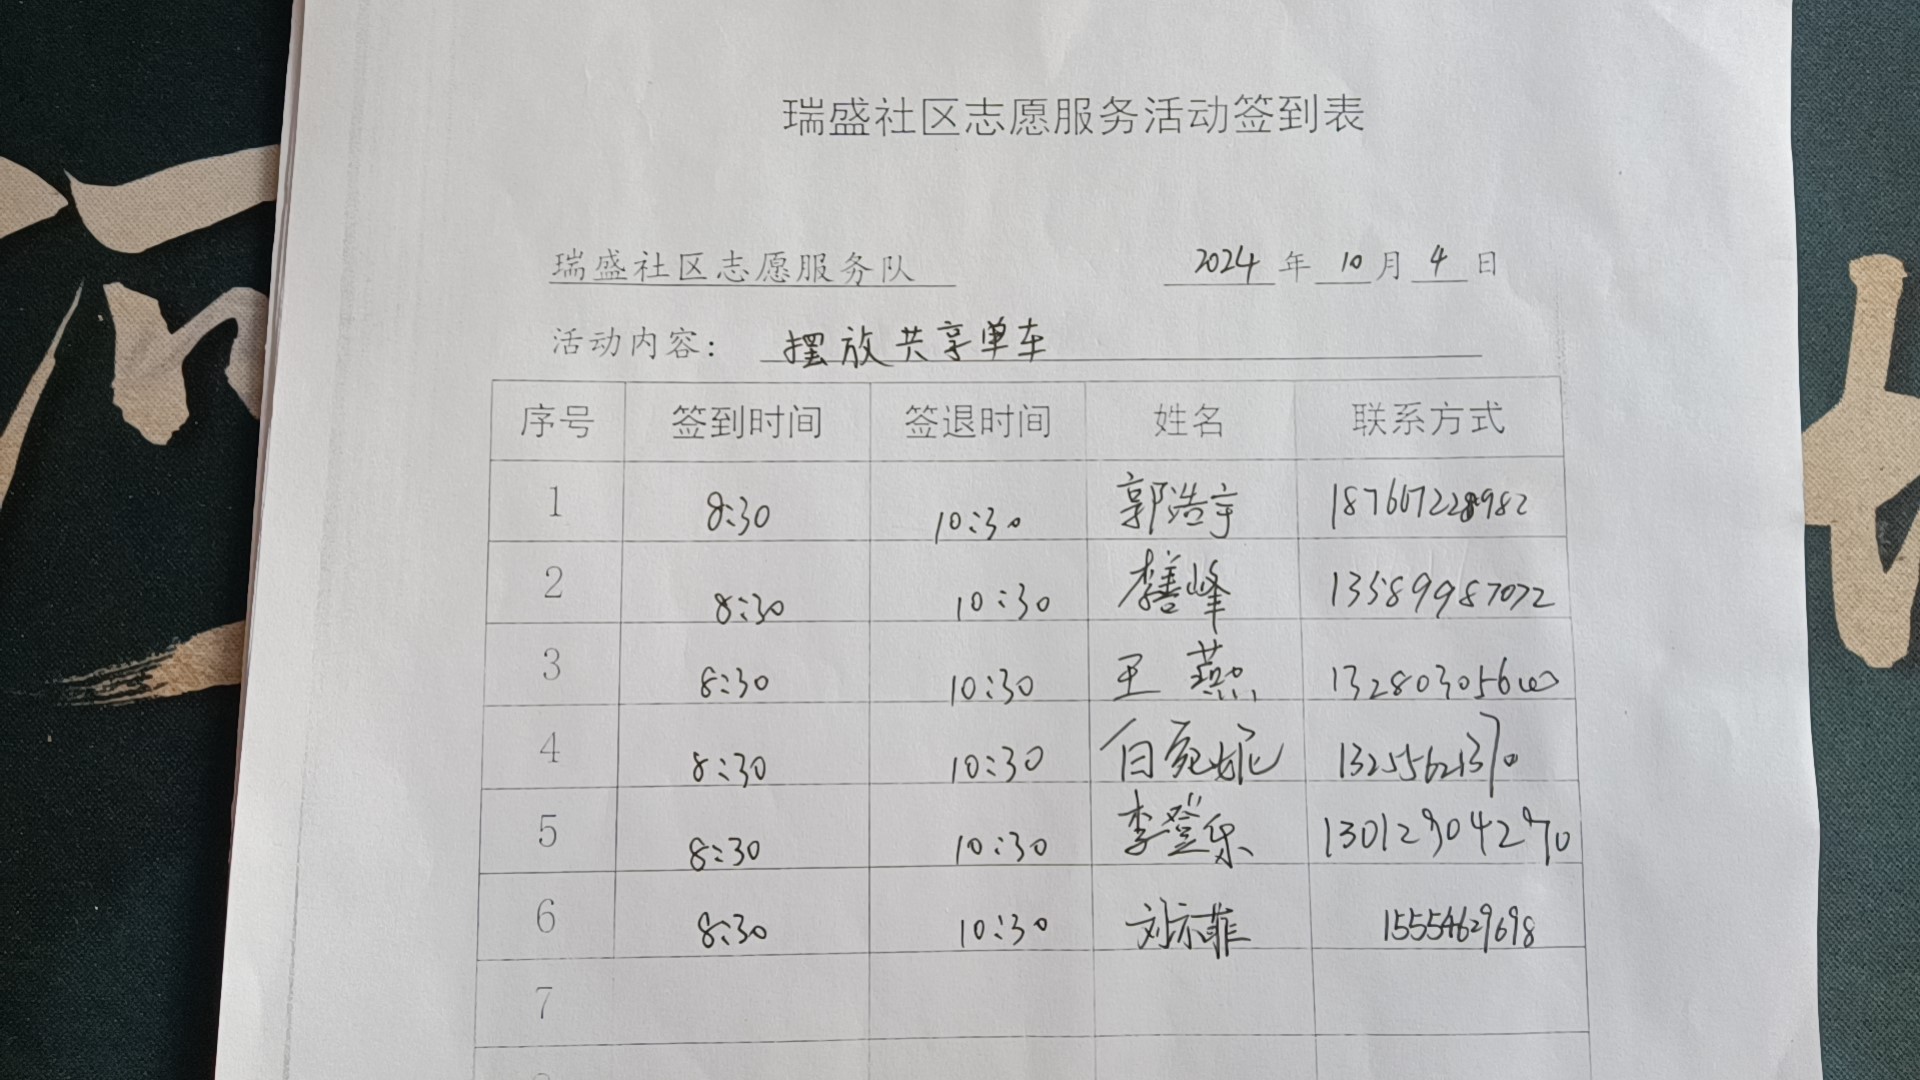 瑞盛社区志愿服务活动签到表
瑞盛社区志愿服务队 2024年10月4日
活动内容：摆放共享单车
序号 签到时间 签退时间 姓名 联系方式
1 8:30 10:30 郭浩宇
2 8:30 10:30 李善峰 13589987072
3 8:30 10:30 王燕 13280305600
4 8:30 10:30 白宛妮 13255621370
5 8:30 10:30 李登乐 13012904270
6 8:30 10:30 15554629698
7